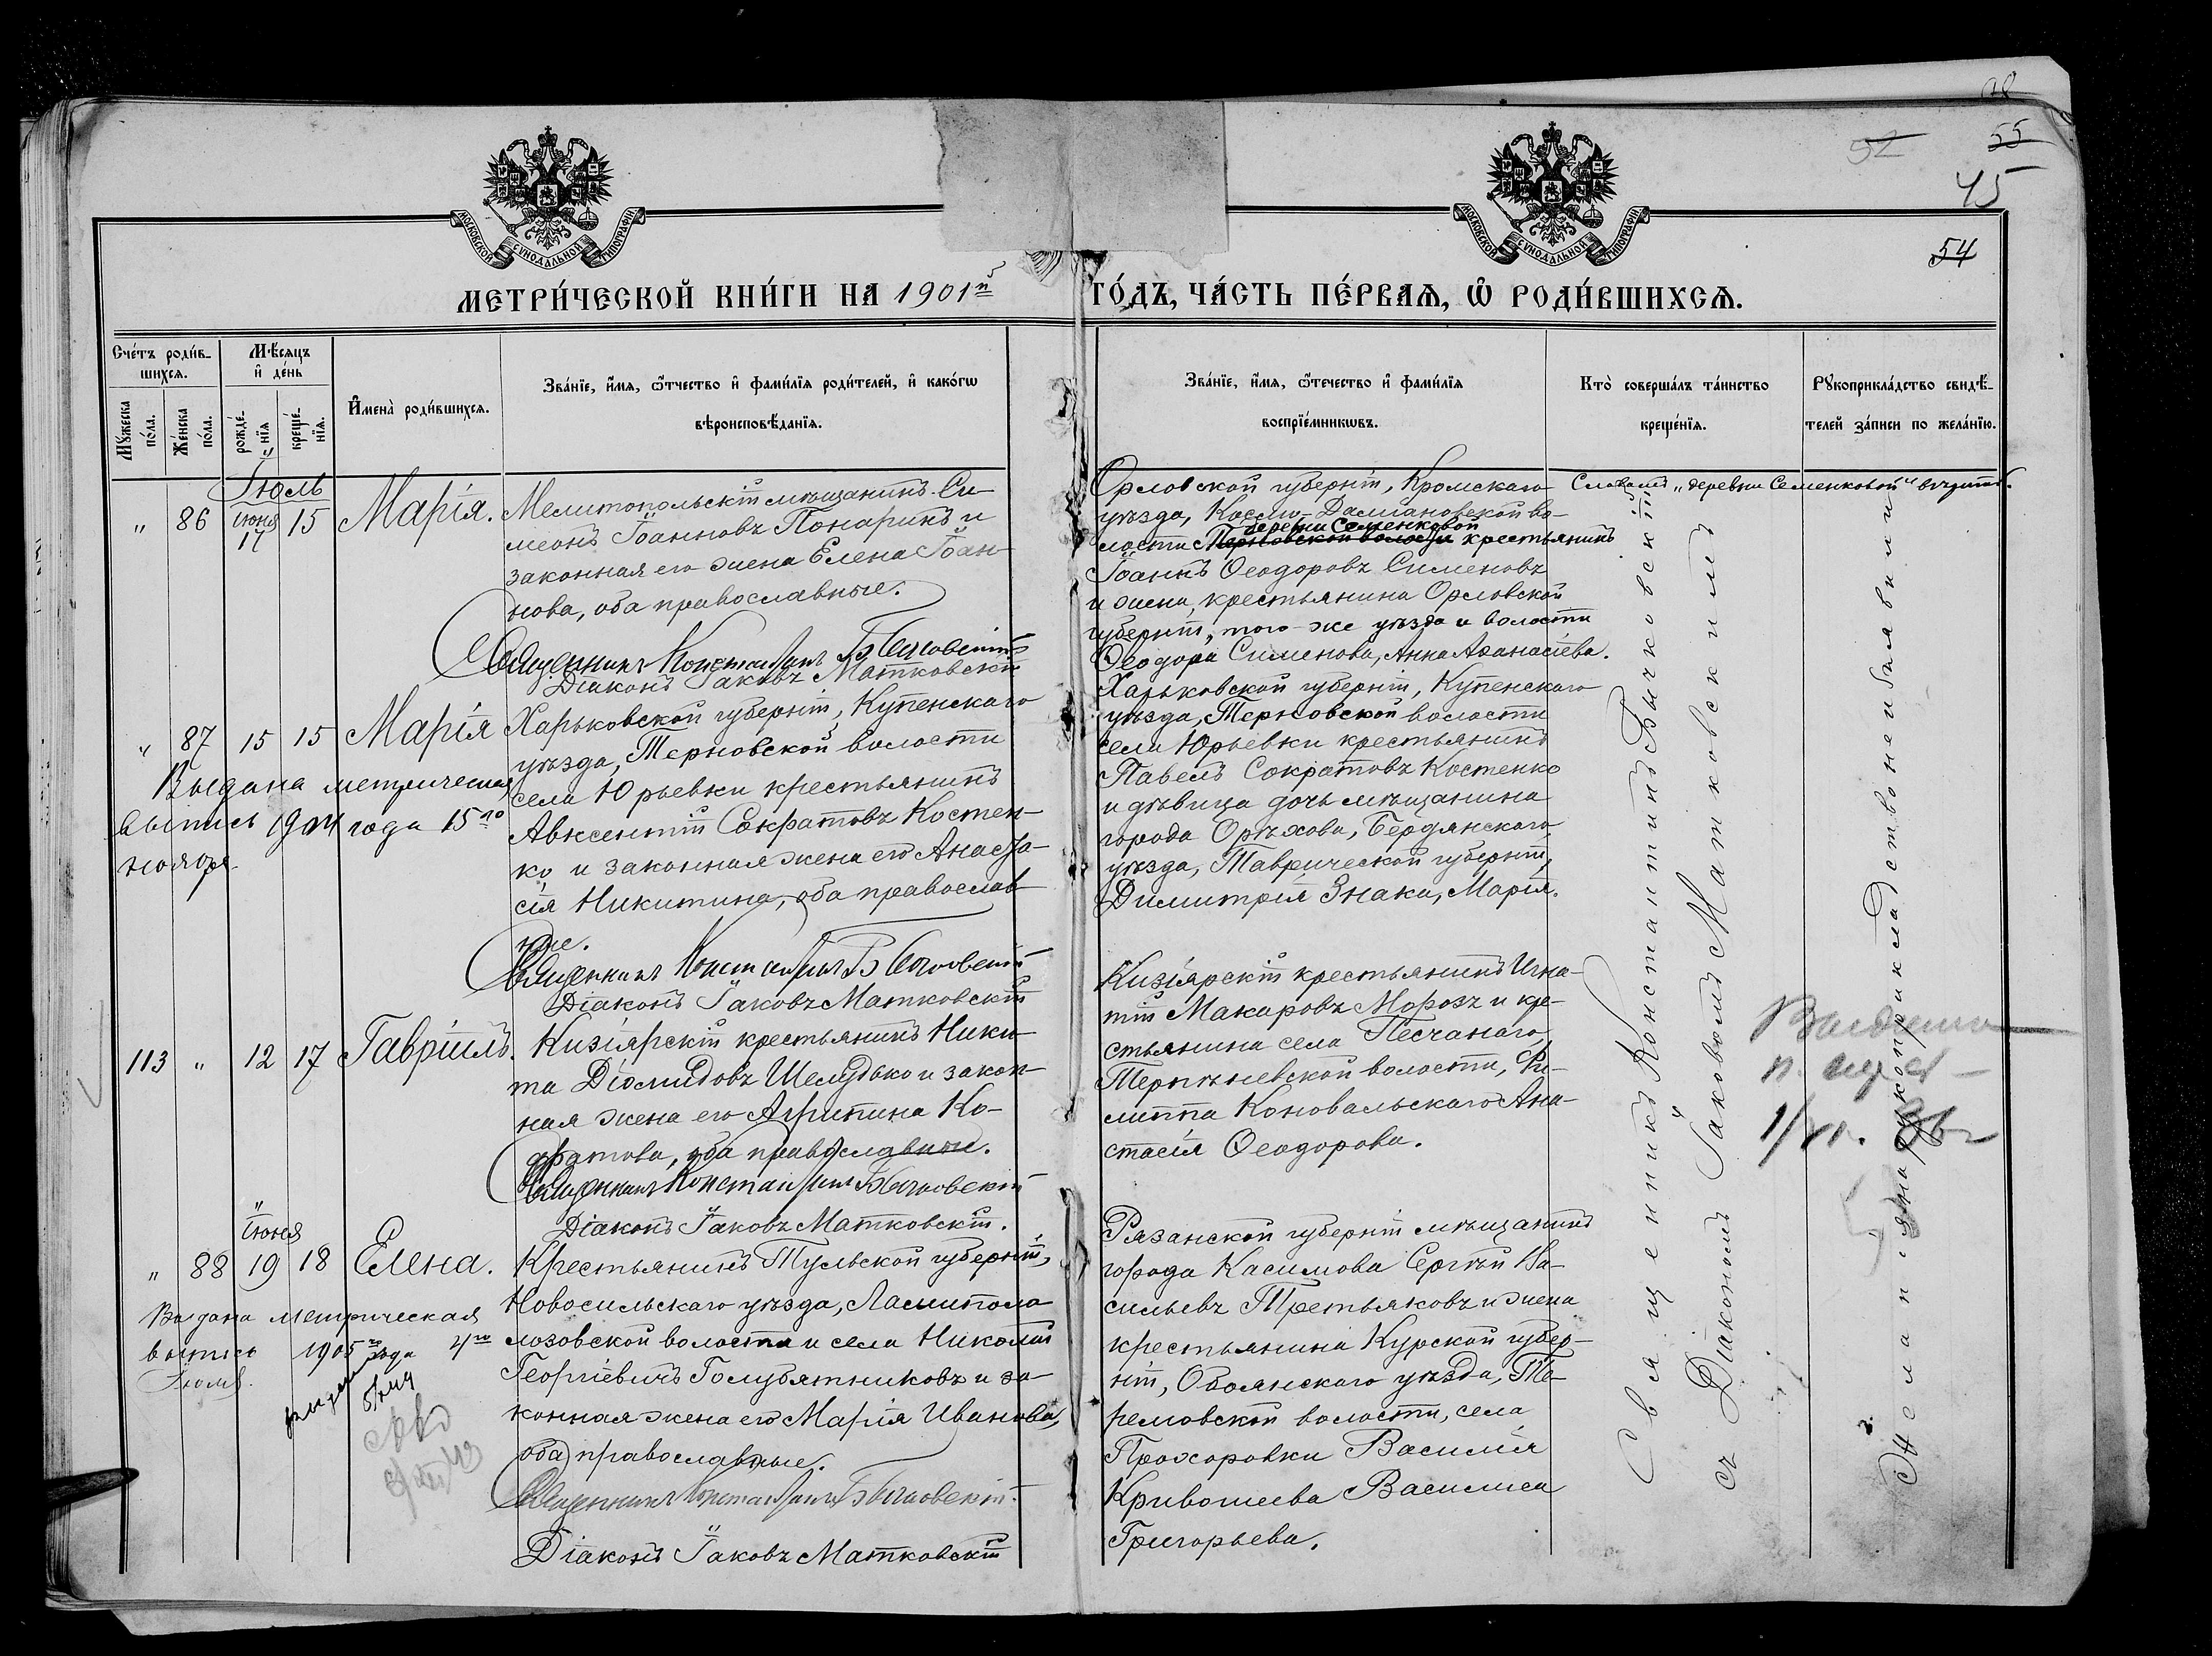 52
55
45
54
МОСКОВСКОЙ СѴНОДАЛЬНОЙ ТИПОГРАФІИ
МОСКОВСКОЙ СѴНОДАЛЬНОЙ ТИПОГРАФІИ
МЕТРИ́ЧЕСКОЙ КНИ́ГИ НА 1901й
ГО́ДЪ, ЧА́СТЬ ПЕ́РВАЯ, Ѡ РОДИ́ВШИХСЯ.
Сче́тъ роди́в-
шихся.
Мꙋ́жеска
по́ла.
Же́нска
по́ла.
Мѣ́сяцъ
и҆ де́нь
рожде́-
нїя
креще́-
нїя.
И҆мена̀ роди́вшихся.
Зва́нїе, и҆́мя, ѻ҆́тчество и҆ фами́лїя роди́телей, и҆ како́гѡ
вѣроисповѣ́данїя.
Зва́нїе, и҆́мя, ѻ҆те́чество и҆ фами́лїя
воспрїе́мникѡвъ.
Кто̀ соверша́лъ та́инство
креще́нїя.
Рꙋкоприкла́дство свидѣ́-
телей за́писи по жела́нїю.
Іюль
" 86 іюня 17 15 Марія.
Мелитопольскій мѣщанинъ Си-
меонъ Іоанновъ Понаринъ и
законная его жена Елена Іоан-
нова, оба православные.
Священникъ Константинъ Бычковскій
Діаконъ Іаковъ Матковскій
Орловской губерніи, Кромскаго
уѣзда, Космо-Даміановской во-
лости деревни Семенковой крестьянинъ
Іоаннъ Ѳеодоровъ Сименовъ
и жена крестьянина Орловской
губерніи, того-же уѣзда и волости
Ѳеодора Сименова, Анна Аѳанасіева.
Словамъ „деревни Семенковой"
" 87 15 15 Марія
Выдана метрическая
выпись 1904 года 15го
ноября.
Харьковской губерніи, Купенскаго
уѣзда, Терновской волости
села Юрьевки крестьянинъ
Авксентій Сократовъ Костен-
ко и законная жена его Анаста-
сія Никитина, оба православ-
ные.
Священникъ Константинъ Бычковскій
Діаконъ Іаковъ Матковскій
Харьковской губерніи, Купенскаго
уѣзда, Терновской волости
села Юрьевки крестьянинъ
Павелъ Сократовъ Костенко
и дѣвица дочь мѣщанина
города Орѣхова, Бердянскаго
уѣзда, Таврической губерніи,
Димитрія Знака, Марія.
113 " 12 17 Гавріилъ.
Кизіярскій крестьянинъ Ники-
та Діомидовъ Шелудько и закон-
ная жена его Агрипина Ко-
дратова, оба православные.
Священникъ Константинъ Бычковскій
Діаконъ Іаковъ Матковскій.
Кизіярскій крестьянинъ Игна-
тій Макаровъ Морозъ и кре-
стьянина села Песчанаго,
Терпѣньевской волости, Фи-
липпа Коновальскаго Ана-
стасія Ѳеодорова.
іюня
" 88 19 18 Елена.
Выдана метрическая
выпись 1905 года 4го
Іюля.
Крестьянинъ Тульской губерніи,
Новосильскаго уѣзда,
лозовской волости и села Николай
Георгіевичъ Голубятниковъ и за-
конная жена его Марія Иванова,
оба православные.
Священникъ Константинъ Бычковскій.
Діаконъ Іаковъ Матковскій
Рязанской губерніи мѣщанинъ
города Касимова Сергѣй Ва-
сильевъ Третьяковъ и жена
крестьянина Курской губер-
ніи, Обоянскаго уѣзда, Те-
ремовской волости, села
Прохоровки Василія
Кривошеева Василиса
Григорьева.
Священникъ Константинъ Бычковскій
съ Діакономъ Іаковомъ Матковскимъ
Желанія на рукоприкладство не изъявили
Выдана